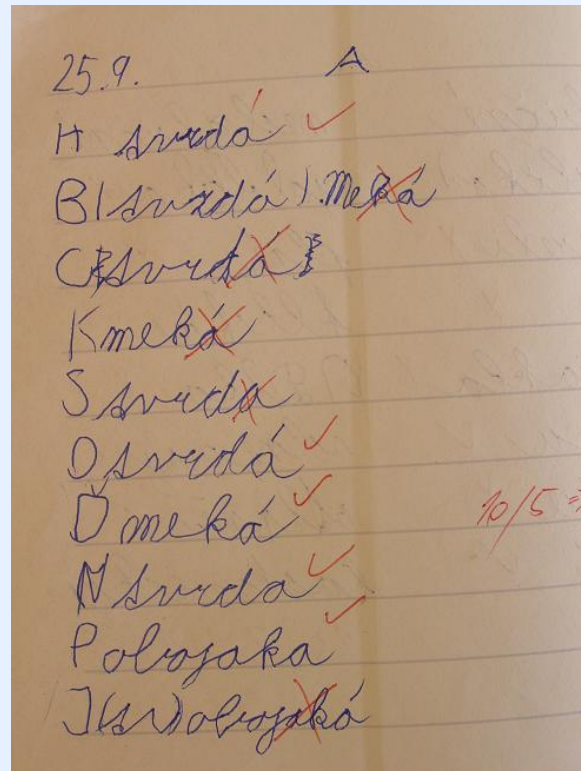 25.9. A
H svrdá
B(svrdá) meká
C svrdá
K meká
S svrda
D svrdá
Ď meká
N svrda
P obojaka
J(sv)obojaká
10/5 =